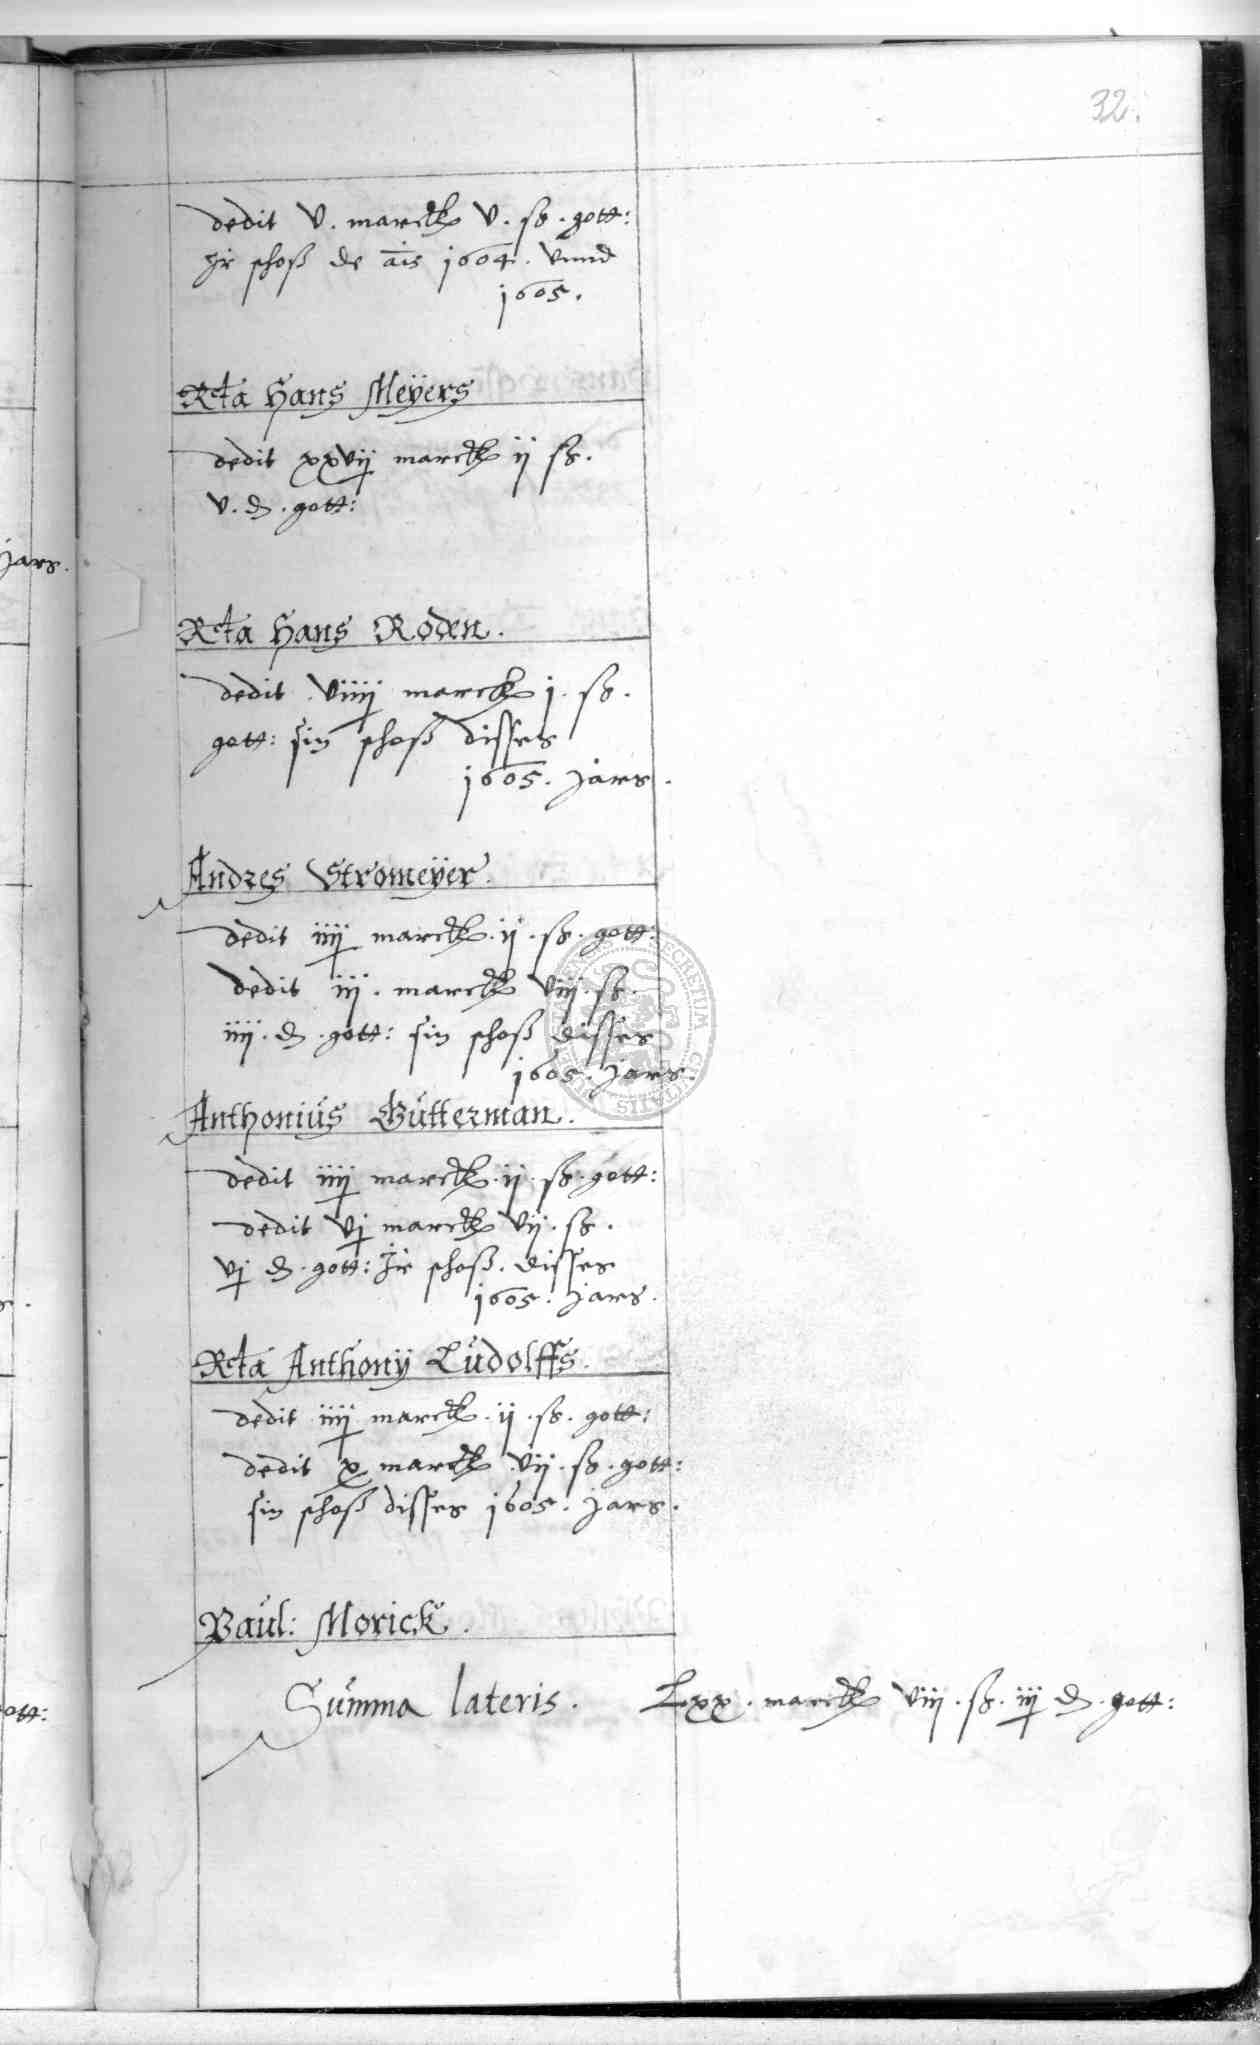 32.
dedit v. marck v. ß. gott:
Ir schoß de ais 1604. vnnd
1605.
Rta Hans Meÿers
dedit xxvij marck ij ß.
v. d. gott:
jars.
Rta Hans Roden.
dedit viiij marck j. ß.
gott: sin schoß disses
1605. jars.
Andres Stromeÿer.
dedit iiij marck. ij. ß. gott:
dedit iij. marck viij. ß.
iiij. d. gott: sin schoß disses
1605. jars.
Anthonius Gutterman.
dedit iiij marck. ij. ß. gott:
dedit vj marck vij. ß.
vj d. gott: Ir schoß. disses
1605. jars.
Rta Anthonÿ Ludolffs.
dedit iiij marck. ij. ß. gott:
dedit x marck vij. ß. gott:
sin schoß disses 1605. jars.
Paul: Morick.
Summa lateris. Lxx. marck viij. ß. iij d. gott:
ott:
SECRETUM CIVITATIS